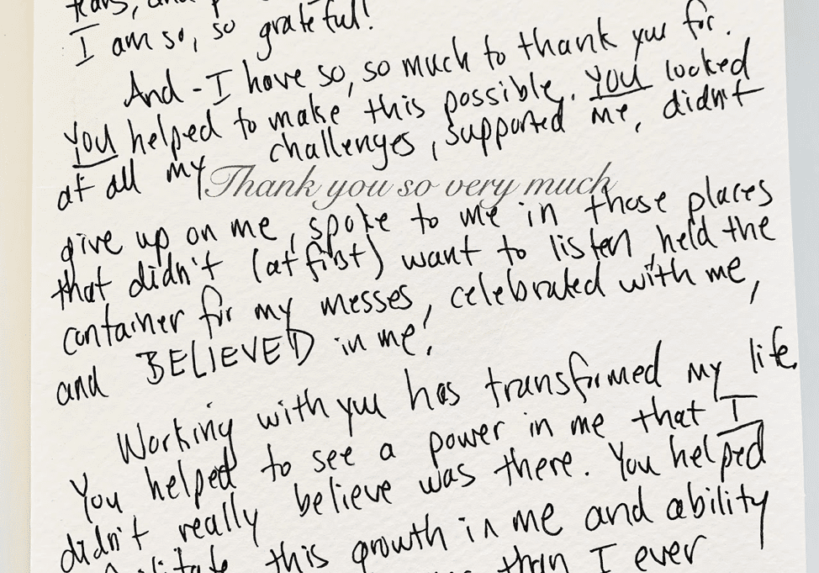 tears, and
I am so, so grateful!
And - I have so, so much to thank you for.
You helped to make this possible. You looked
at all my challenges, supported me, didn't
Thank you so very much
give up on me, spoke to me in those places
that didn't (at first) want to listen, held the
container for my messes, celebrated with me,
and BELIEVED in me!
Working with you has transformed my life.
You helped to see a power in me that I
didn't really believe was there. You helped
facilitate this growth in me and ability
than I ever